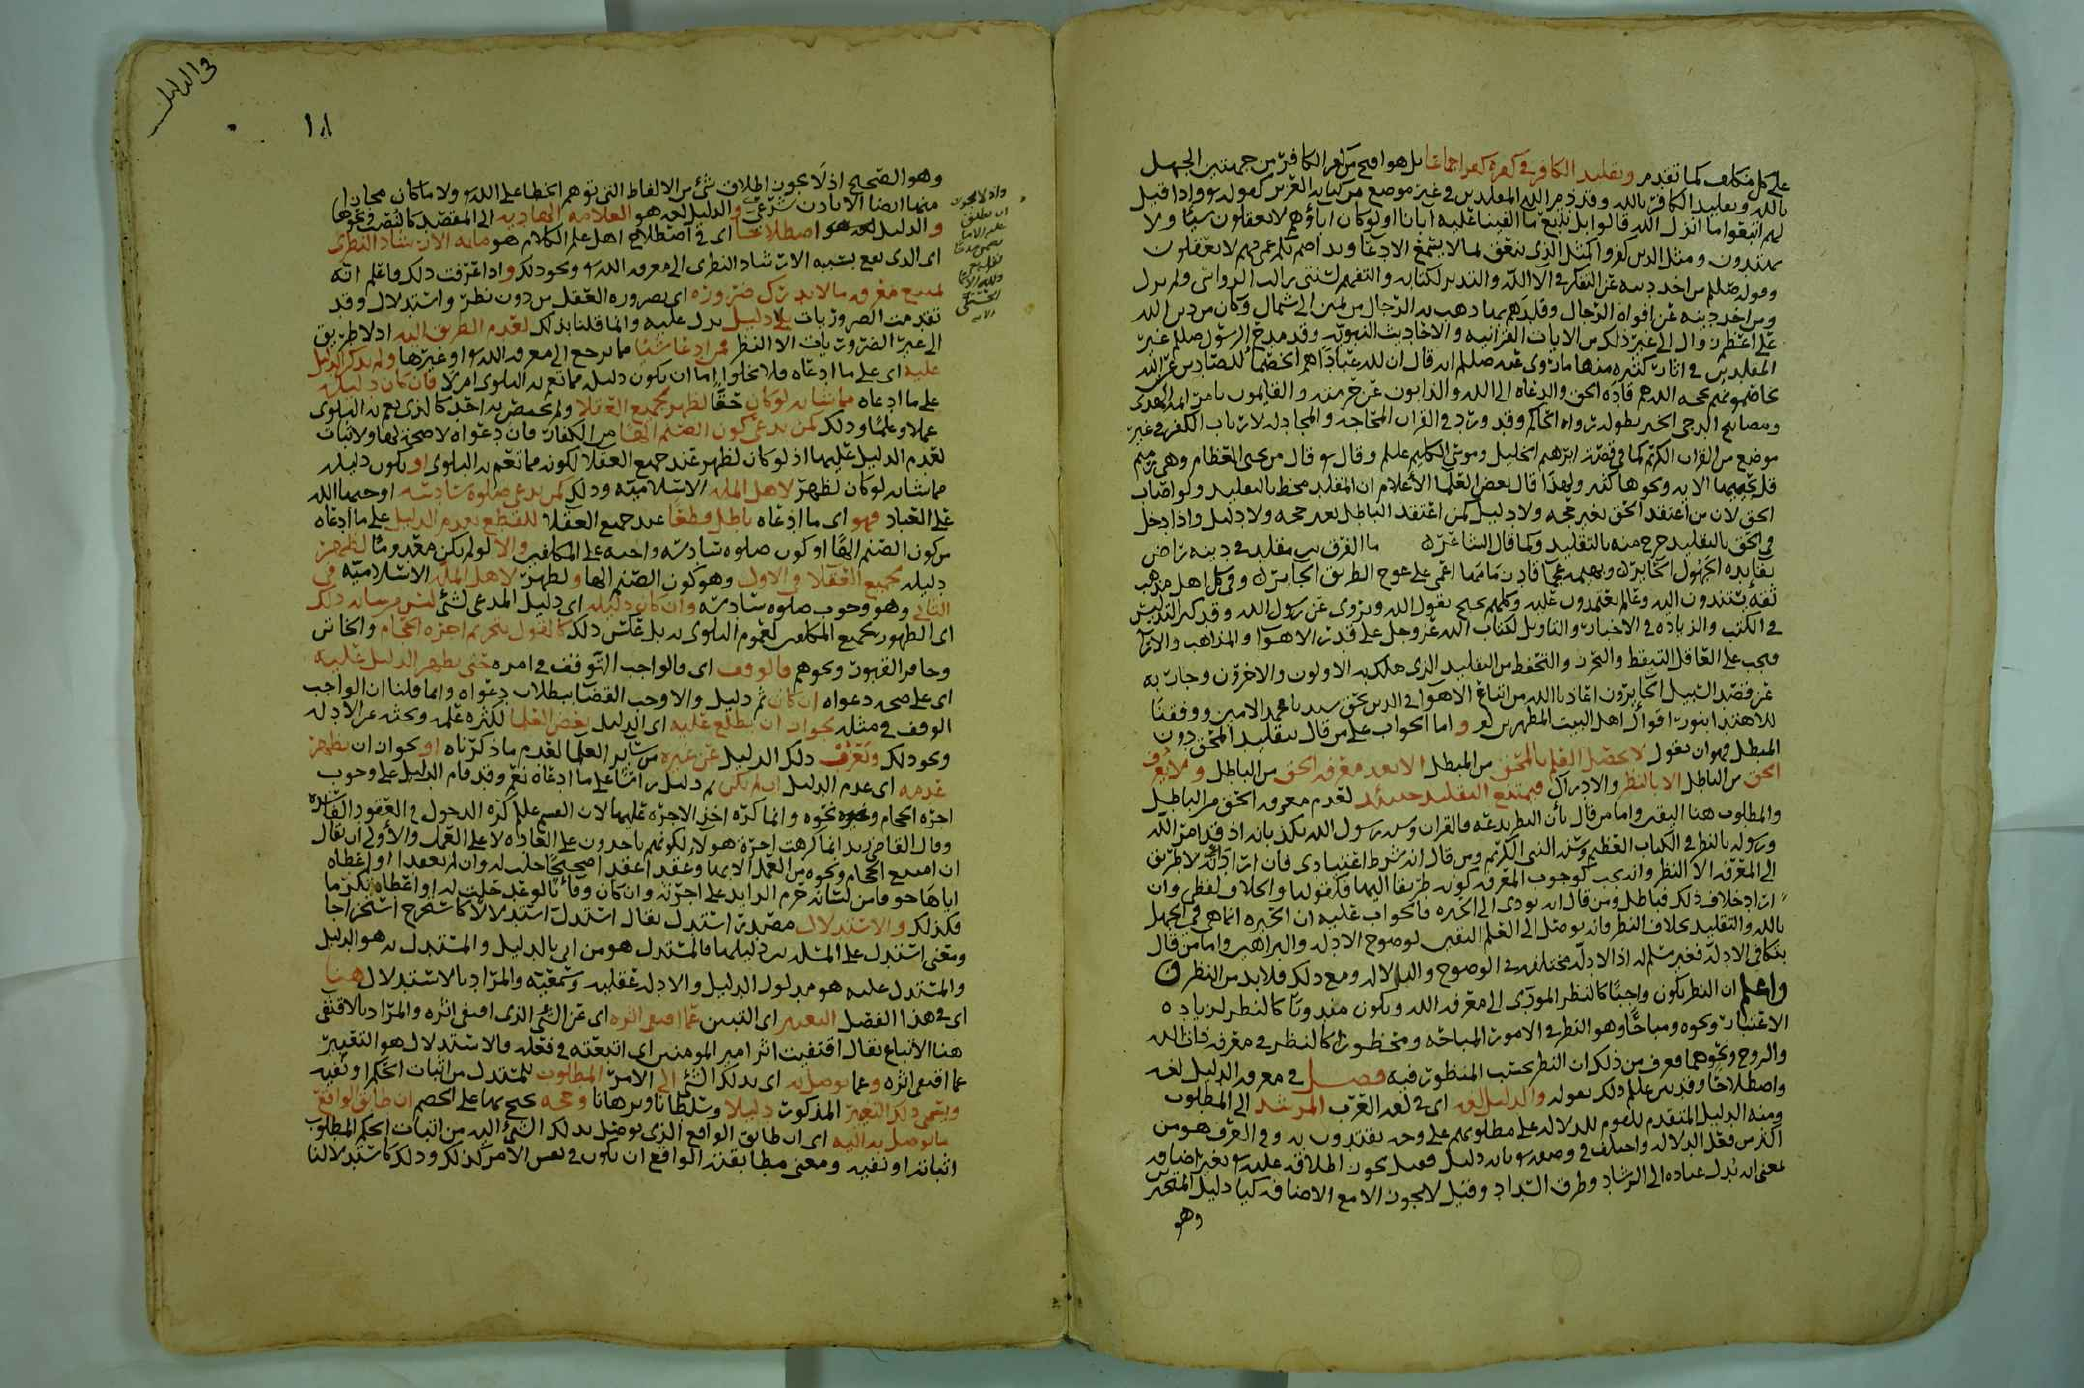 على كل مكلف كما تقدم وتقليد الكافر في كفره كفر اجماعا بل هو اقبح من كفر الكافر من جهتين الجهل
بالله وتقليد الكافر بالله وقد ذم الله المقلدين في غير موضع من كتابه العزيز كقوله واذا قيل
لهم اتبعوا ما انزل الله قالوا بل نتبع ما الفينا عليه ابانا اولو كان اباؤهم لا يعقلون شيئا ولا
يهتدون ومثل الذين كفروا كمثل الذي ينعق بما لا يسمع الا دعاء ونداء صم بكم عمي فهم لا يعقلون
وقوله صلعم من اخذ دينه عن التفكر في الاء الله والتدبر لكتابه والتفهم لسنتي زالت الرواسي ولم يزل
ومن اخذ دينه عن افواه الرجال وقلدهم فيه ذهب به الرجال من يمين الى شمال وكان من دين الله
على اعظم زوال الى غير ذلك من الايات القرانيه والاخاديث النبويه وقد مدح الرسول صلعم غير
المقلدين في اثار كثيره منها ما روي عنه صلعم انه قال ان لله عبادا هم الخصما للصادين عن الله
يخاصمونهم بحجه الله هم قاده الحق والدعاه الى الله والذابون عن حرمته والقايمون بامره ايمه الهدى
ومصابيح الدجى الخبر بطوله رواه الحاكم وقد ورد في القران المحاجه والمجادله لارباب الكفر في غير
موضع من القران الكريم كما في قصة ابرهيم الخليل وموسى الكليم عليلم وقال قال من يحيي العظام وهي رميم
قل يحييها الايه ونحوها كثير ولهذا قال بعض العلما الأعلام ان المقلد مخط بالتقليد ولو اصاب
الحق لان من اعتقد الحق بغير حجه ولا دليل كمن اعتقد الباطل بغير حجه ولا دليل واذا دخل
في الحق بالتقليد خرج منه بالتقليد وكما قال الشاعر ما الفرق بين مقلد في دينه راض
بقايده الجهول الحاير وبهيمه عجما قاد زمامها اعمى على عوج الطريق الجاير وفي كل اهل مذهب
ثقه يستندون اليه وعالم يعتمدون عليه وكلهم يحتج بقول الله ويروي عن رسول الله وقد كثر التدليس
في الكتب والزياده في الاخبار والتاويل لكتاب الله عز وجل على قدر الاهوا والمذاهب والارآ
فيجب على العاقل التيقظ والتحرز والتحفظ من التقليد الذي هلك به الاولون والاخرون وجار به
عن قصد السبيل الحايرون اعاذنا الله من اتباع الاهوا في الدين بحق سيدنا محمد الامين ووفقنا
للاهتدا بنور اقوال اهل البيت المطهرين واما الجواب على من قال بتقليد المحق دون
المبطل فهو ان نقول لا يحصل العلم بالمحق من المبطل الا بعد معرفه الحق من الباطل ولا يعرف
الحق من الباطل الا بالنظر والادراك فيمتنع التقليد حينئذ لعدم معرفه الحق من الباطل
والمطلوب هنا اليقين واما من قال بأن النظر بدعه فالقران وسنه رسول الله تكذبانه اذ قد امر الله
ورسوله بالنظر في الكتاب العظيم وسنه النبي الكريم ومن قال انه شرط اعتيادي فان اراد انه لا طريق
الى المعرفه الا النظر وانه يجب كوجوب المعرفه كونه طريقا اليها فكقولنا والخلاف لفظي وان
اراد خلاف ذلك فباطل ومن قال انه يودي الى الحيره فالجواب عليه ان الحيره انما هي في الجهل
بالله والتقليد بخلاف النظر فانه يوصل الى العلم اليقين لوضوح الادله والبراهين واما من قال
بتكافي الادله فغير مسلم له اذ الادله مختلفه في الوضوح والدلاله ومع ذلك فلا بد من النظر
واعلم ان النظر يكون واجبا كالنظر المودى الى معرفه الله ويكون مندوبا كالنظر لزياده
الاعتبار ونحوه ومباحا وهو النظر في الامور المباحه ومحظورا كالنظر في معرفه ذات الله
والروح ونحوهما فعرف من ذلك ان النظر بحسب المنظور فيه فصل في معرفه الدليل لغه
واصطلاحا وقد بين عليلم ذلك بقوله والدليل لغه اي في لغه العرب المرشد الى المطلوب
ومنه الدليل المتقدم للقوم للدلاله على مطلوبهم على وجه يقتدون به وفي العرف هو من
اكثر من فعل الدلاله واختلف في وصفه بانه دليل فقيل يجوز اطلاقه عليه بغير اضافه
بمعنى انه يدل عباده الى الرشاد وطرف السداد وقيل لا يجوز الا مع الاضافه كيا دليل المتحير
وهو
في الدليل
١٨
وهو الصحيح اذ لا يجوز اطلاق شئ من الالفاظ التي توهم الخطا على الله ولا ما كان مجازا
منها ايضا الا باذن شرعي والدليل لغه هو العلامه الهاديه الى المقصد كالنصب وغيرها
والدليل اصطلاحا اي في اصطلاح اهل علم الكلام هو ما به الارشاد النظرى
اي الذي يقع بسببه الارشاد النظري الى معرفه الله ونحو ذلك واذا عرفت ذلك فاعلم انه
يمتنع معرفه ما لا يدرك ضروره اي بضروره العقل من دون نظر واستدلال وقد
تقدمت الضروريات بلا دليل يدل عليه وانما قلنا بذلك لعدم الطريق اليه اذ لا طريق
الى غير الضروريات الا النظر فمن ادعا شيئا مما يرجع الى معرفه الله او غيرها ولم يذكر الدليل
عليه اي على ما ادعاه فلا يخلوا اما ان يكون دليله مما تعم به البلوى ام لا فان كان دليله
على ما ادعاه مما شانه لو كان حقا لظهر لجميع العقلا ولم يختص به احد كالذي يعم به البلوى
عملا وعلما وذلك كمن يدعي كون الصنم الها من الكفار فان دعواه لا صحة لها ولا ثبات
لعدم الدليل عليها اذ لو كان لظهر عند جميع العقلا لكونه مما تعم به البلوى او يكون دليله
مما شانه لو كان لظهر لاهل المله الاسلاميه وذلك كمن يدعي صلوة سادسه اوجبها الله
على العباد فهو اي ما ادعاه باطل قطعا عند جميع العقلا للقطع بعدم الدليل على ما ادعاه
من كون الصنم الها او كون صلوه سادسه واجبه على المكلفين والا لو لم يكن معدوما لظهر
دليله لجميع العقلا في الاول وهو كون الصنم الها ولظهر لاهل المله الاسلاميه في
الثاني وهو وجوب صلوه سادسه وان كان دليله اي دليل المدعى لشئ ليس من شانه ذلك
اي الظهور لجميع المكلفين لعموم البلوى به بل عكس ذلك كالقول بتحريم اجره الحجام والخاتن
وحافر القبور ونحوهم فالوقف اي فالواجب التوقف في امره حتى يظهر الدليل عليه
اي على صحه دعواه ان كان ثم دليل والا وجب القضا ببطلان دعواه وانما قلنا ان الواجب
الوقف في مثله لجواز ان يطلع عليه اي الدليل بعض العلما لكثره علمه وبحثه عن الادله
ونحو ذلك ويعزب ذلك الدليل عن غيره من ساير العلما لعدم ما ذكرناه او لجواز ان يظهر
عدمه اي عدم الدليل ان لم يكن ثم دليل راسا على ما ادعاه نعم وقد قام الدليل على وجوب
اجره الحجام ونحوه وانما كره اخذ الاجره عليها لان القسم عليلم كره الدخول في العقود الفاسده
وقال القاضي زيد انما كرهت اجره هولاء لكونهم ياخذون على العاده لا على العمل والأولى ان يقال
ان امتنع الحجام ونحوه من العمل الا بها وعقد اعقدا صحيحا حلت له وان لم يعقدا او اعطاه
اياها خوفا من لسانه حرم الزايد على اجرته وان كان وفاء بالوعد حلت له او اعطاه تكرما
فكذلك والاستدلال مصدر استدل يقال استدل استدلالا كاستخرج استخراجا
ومعنى استدل على المسئله بين دليلها فالمستدل هو من اتى بالدليل والمستدل به هو الدليل
والمستدل عليه هو مدلول الدليل والادله عقليه وسمعيه والمراد بالاستدلال هنا
اي في هذا الفصل التعبير اي التبيين عما اقتفي اثره اي عن الشئ الذي اقتفي اثره والمراد بالاقتفى
هنا الأتباع يقال اقتفيت اثر امير المومنين اي اتبعته في فعله والاستدلال هو التعبير
عما اقتفى اثره وعما توصل به اي بذلك الشئ الى الامر المطلوب للمستدل من اثبات الحكم او نفيه
ويسمى ذلك التعبير المذكور دليلا وسلطانا وبرهانا وحجه يحتج بها على الخصم ان طابق الواقع
ما توصل به اليه اي ان طابق الواقع الذي توصل بذلك الشئ اليه من اثبات الحكم المطلوب
اثباته او نفيه ومعنى مطابقته الواقع ان يكون في نفس الامر كذلك وذلك كاستدلالنا